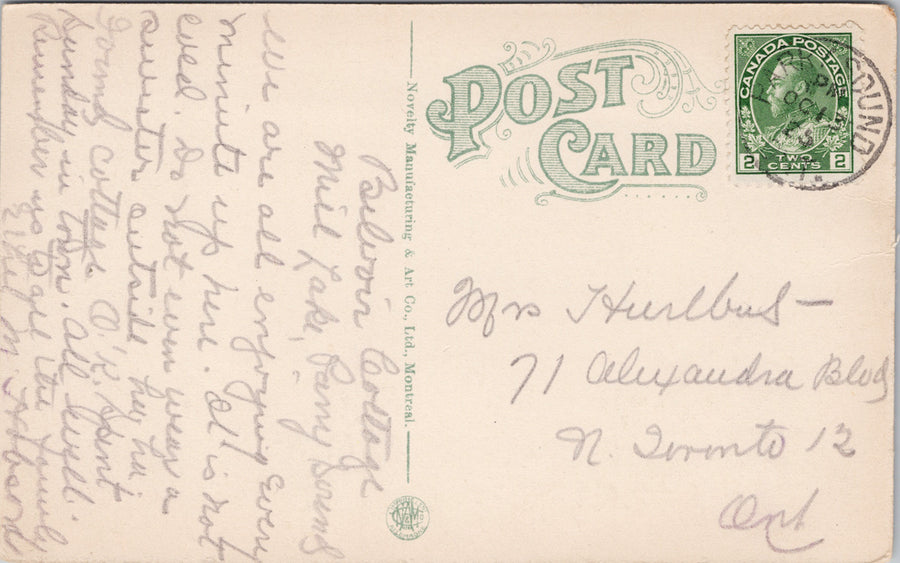 POST
CARD
CANADA POSTAGE
2 TWO CENTS 2
PARRY SOUND
PM
OC
ONT.
Novelty Manufacturing & Art Co., Ltd., Montreal.
Cottage
Mill Lake, Parry Sound
We are all enjoying every
minute up here. It is not
cool. Do not even wear a
sweater outside
Found cottage O.K. Spent
Sunday in town. All well.
Remember us to all the family
Ethel M.
Mrs Hurlbut
71 Alexandra Blvd
N. Toronto 12
Ont